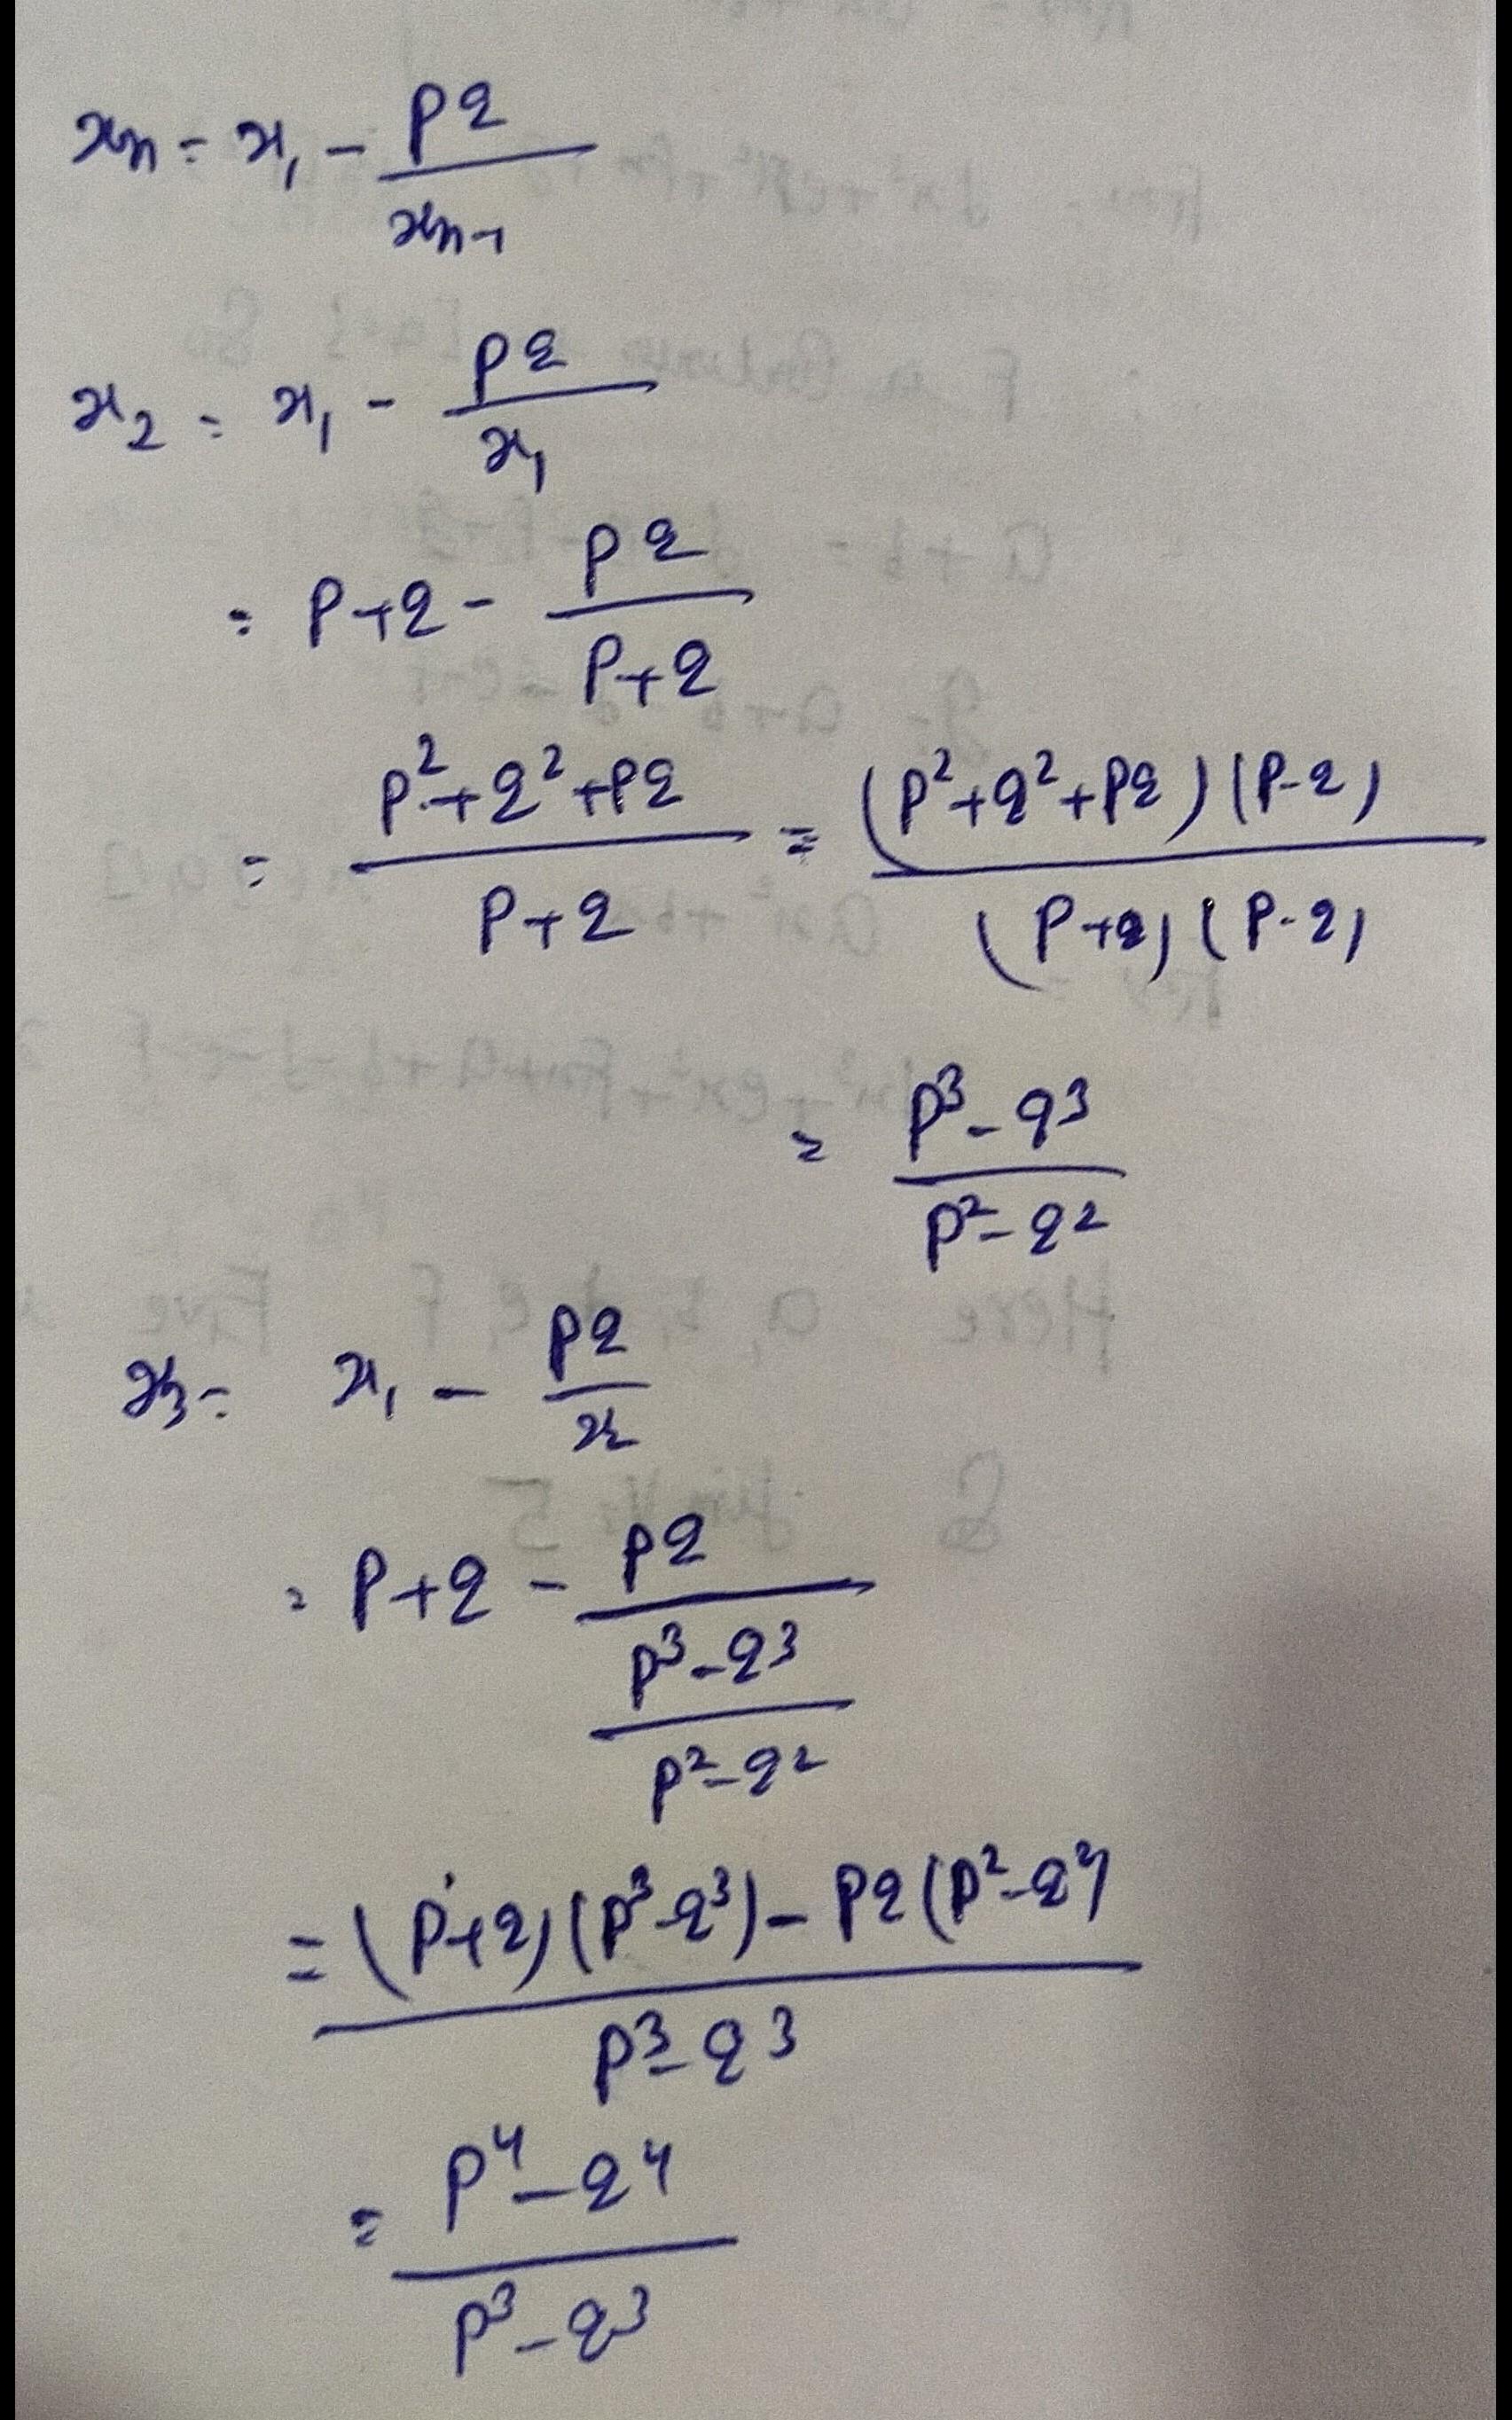 xn = x₁ - pq / xn-1
x₂ = x₁ - pq / x₁
= p+q - pq / p+q
= p²+q²+pq / p+q = (p²+q²+pq)(p-q) / (p+q)(p-q)
= p³-q³ / p²-q²
x₃ = x₁ - pq / x₂
= p+q - pq / p³-q³ / p²-q²
= (p+q)(p³-q³) - pq(p²-q²) / p³-q³
= p⁴-q⁴ / p³-q³